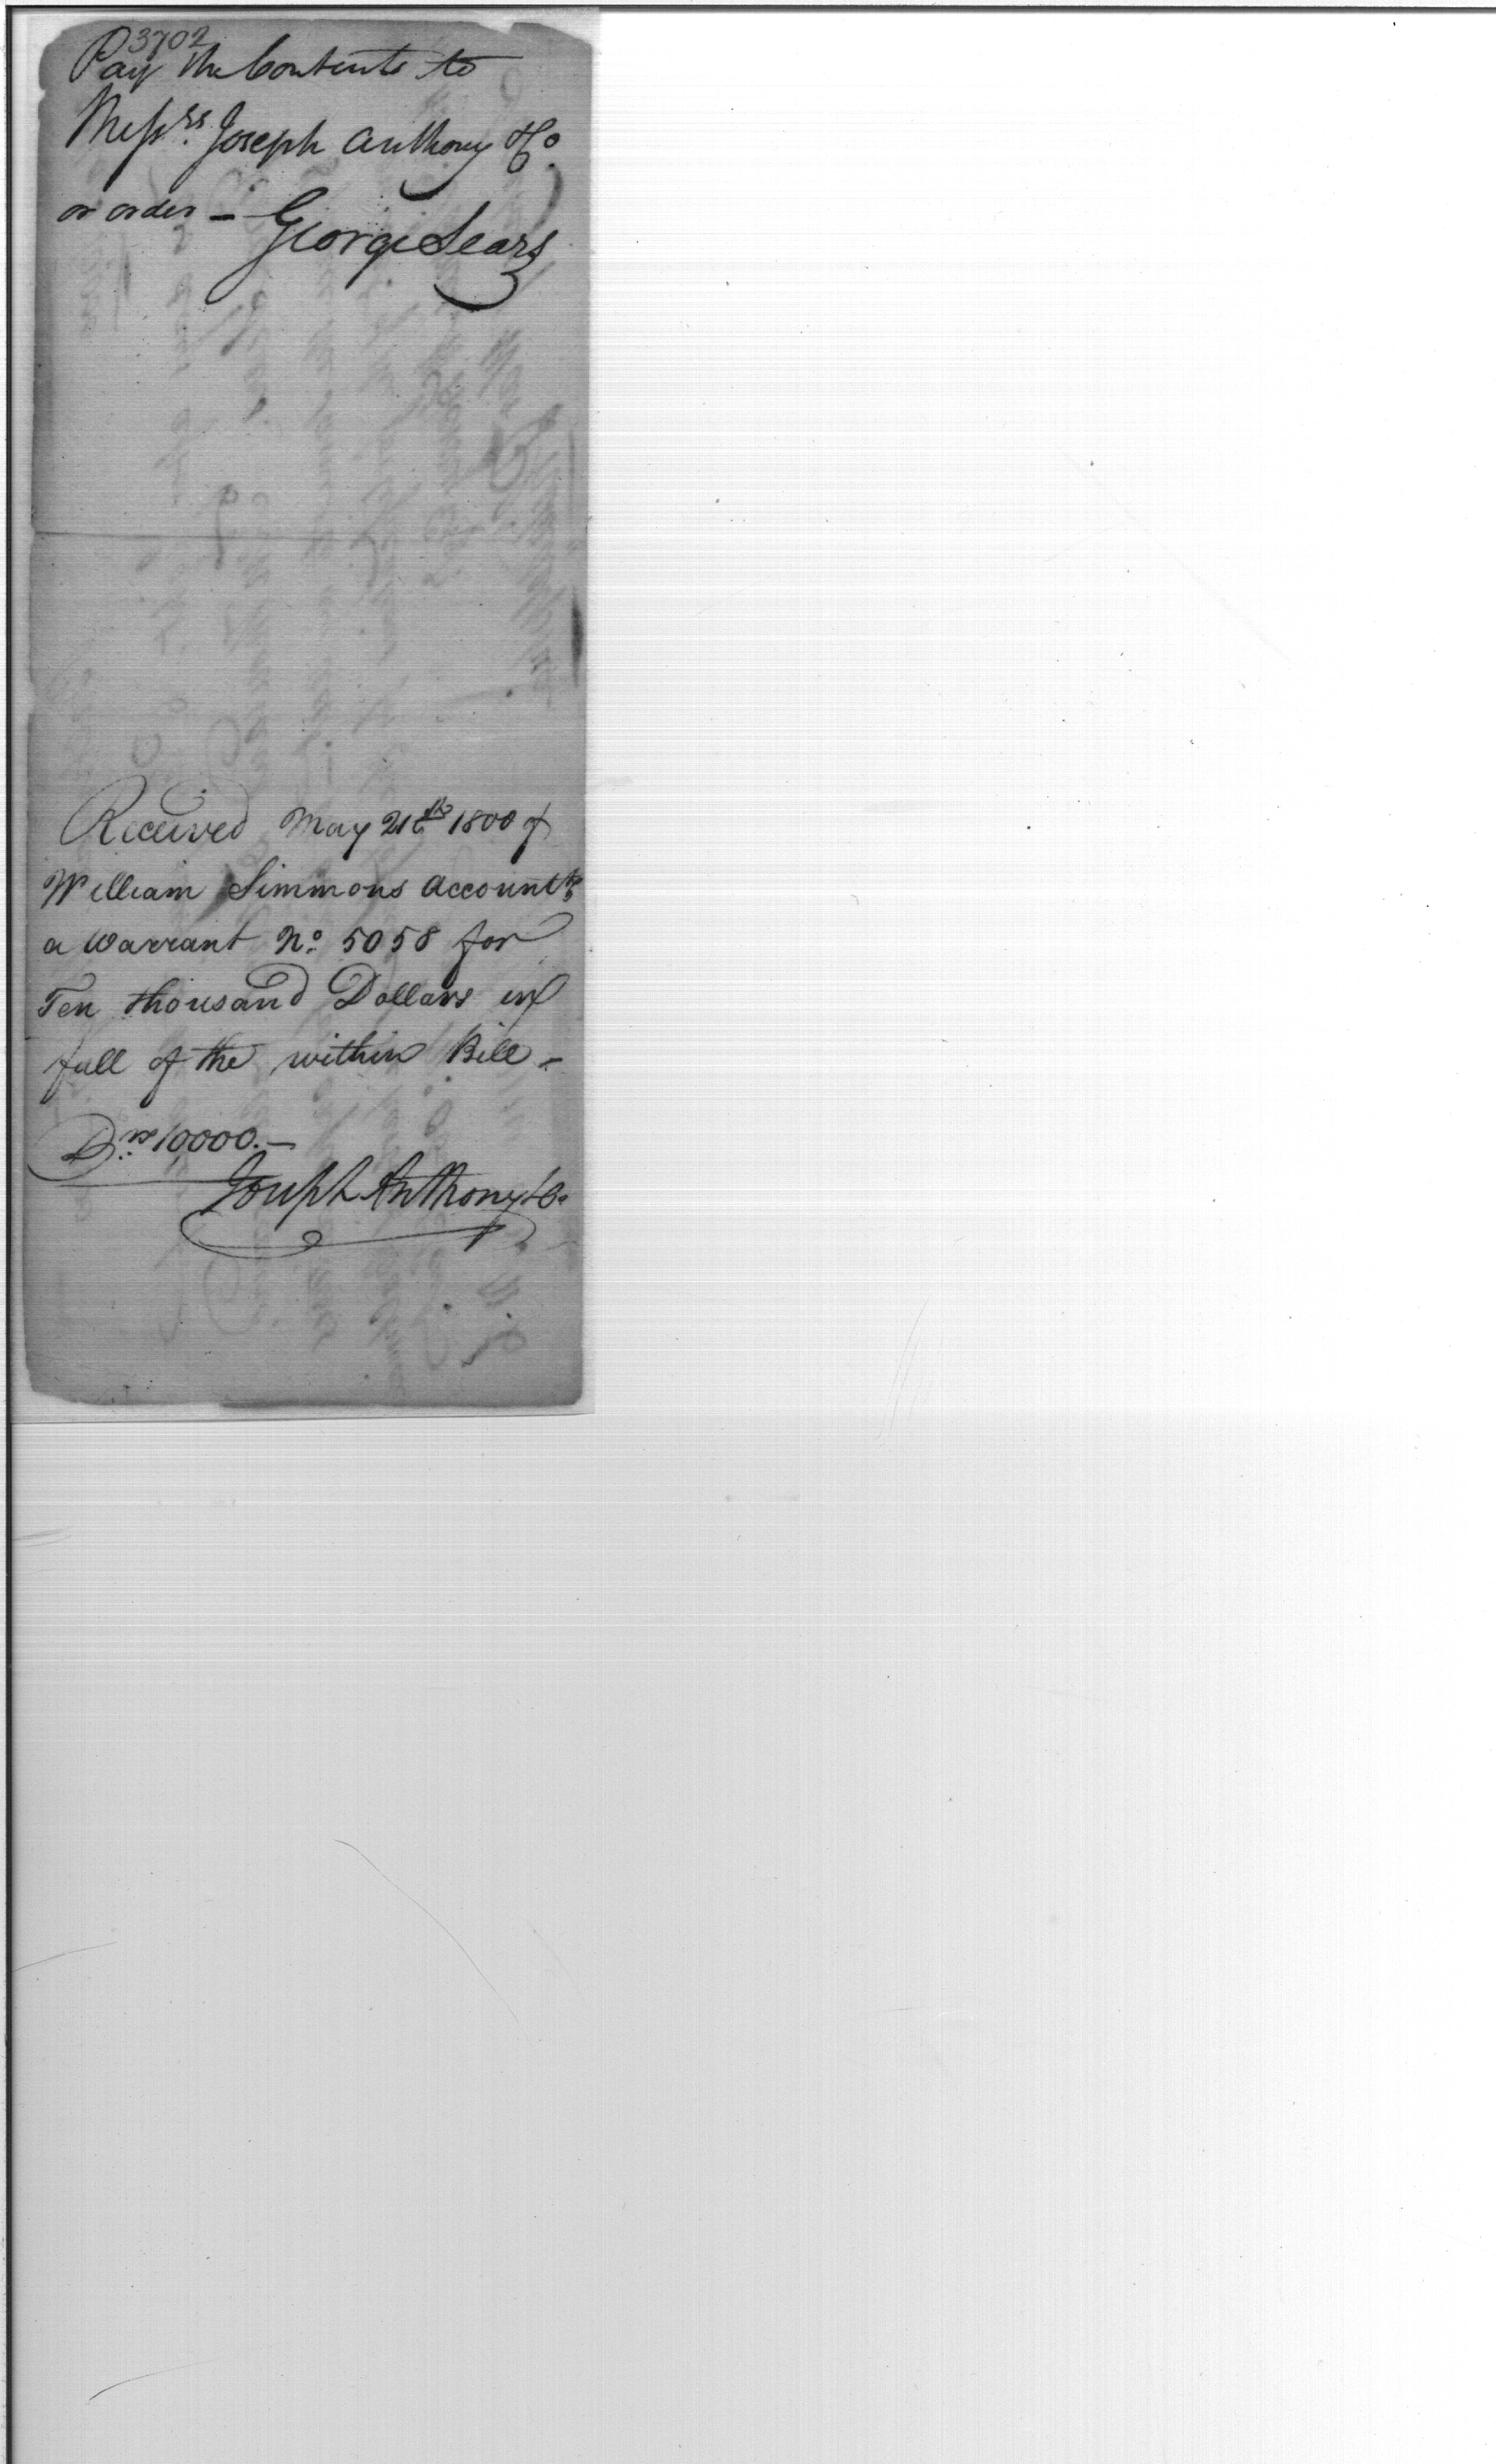 3702
Pay the Contents to
Messrs. Joseph Anthony & Co.
or order – George Sears
Received May 21th 1800 of
William Simmons Accountt
a Warrant No. 5058 for
Ten thousand Dollars in
full of the within Bill –
Drs 10,000.–
Joseph Anthony & Co.